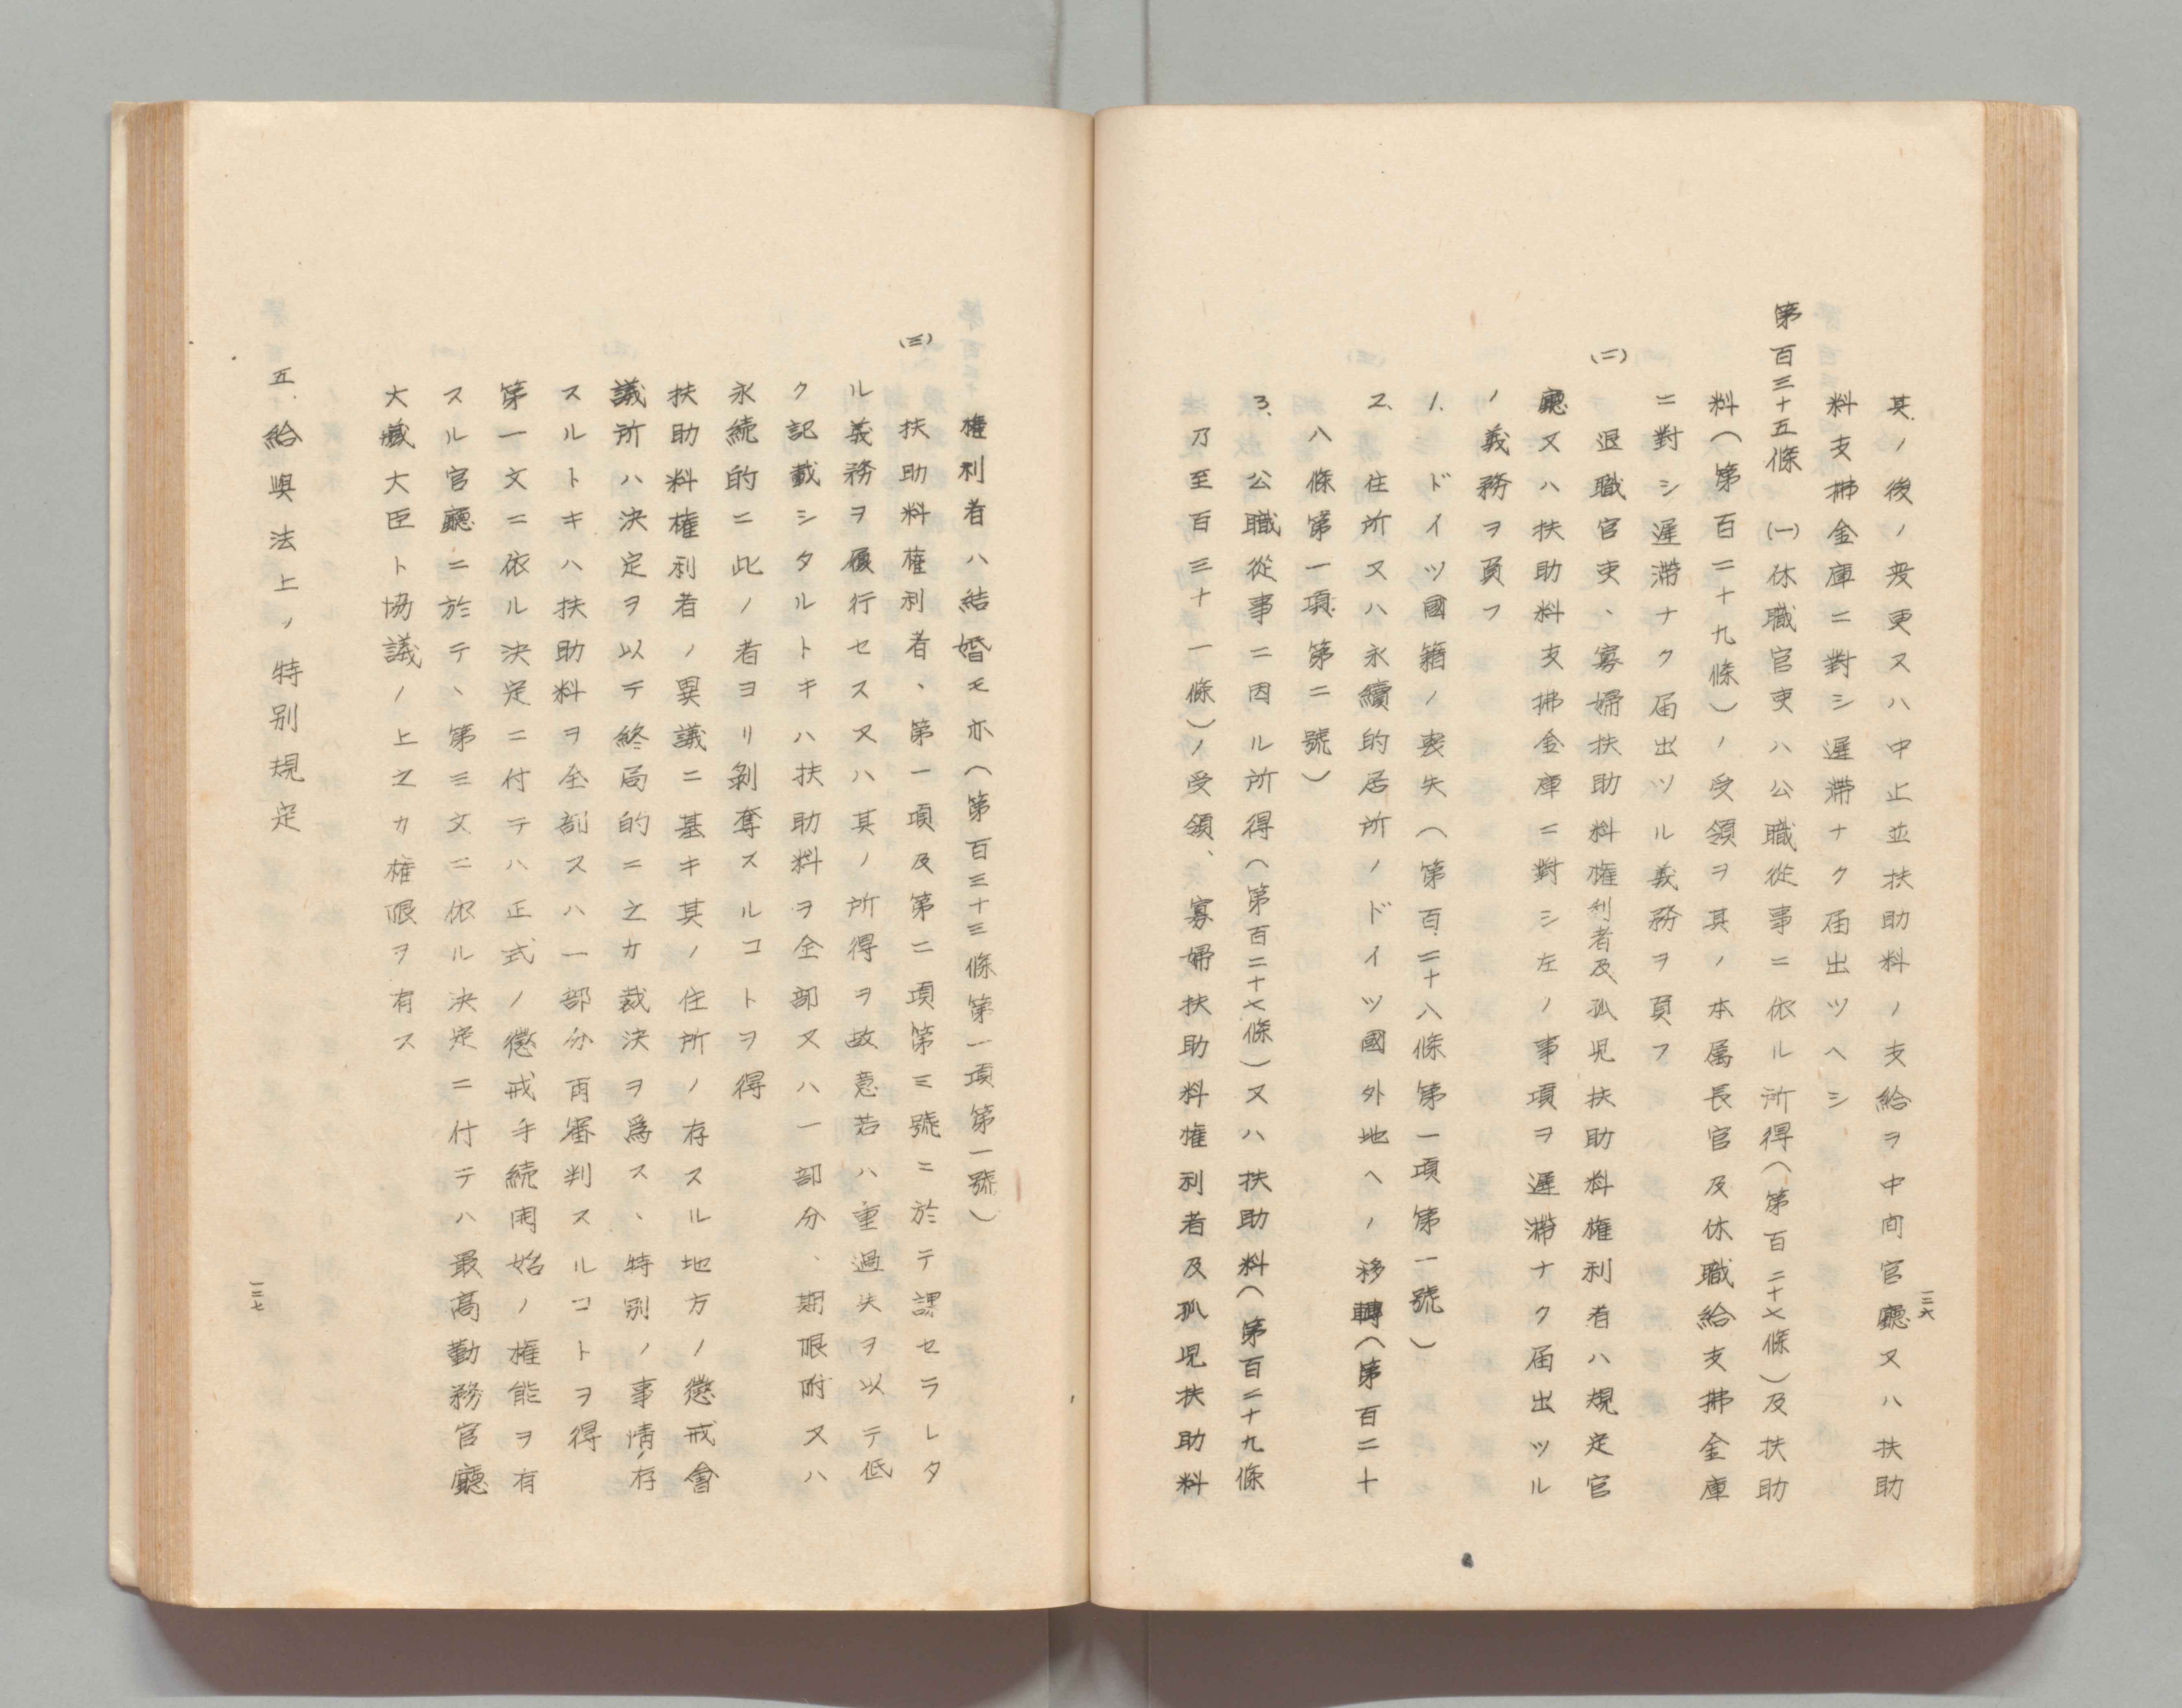 一三六
其ノ後ノ変更又ハ中止並扶助料ノ支給ヲ中間官廳又ハ扶助
料支拂金庫ニ對シ遲滯ナク届出ツヘシ
第百三十五條 (一)休職官吏ハ公職從事ニ依ル所得(第百二十七條)及扶助
料(第百二十九條)ノ受領ヲ其ノ本属長官及休職給支拂金庫
ニ對シ遲滯ナク届出ツル義務ヲ負フ
(二) 退職官吏、寡婦扶助料権利者及孤児扶助料権利者ハ規定官
廳又ハ扶助料支拂金庫ニ對シ左ノ事項ヲ遲滯ナク届出ツル
ノ義務ヲ負フ
1. ドイツ國籍ノ喪失(第百二十八條第一項第一號)
2. 住所又ハ永續的居所ノドイツ國外地ヘノ移轉(第百二十
八條第一項第二號)
3. 公職從事ニ因ル所得(第百二十七條)又ハ扶助料(第百二十九條
乃至百三十一條)ノ受領、寡婦扶助料権利者及孤児扶助料
権利者ハ結婚モ亦(第百三十三條第一項第一號)
(三) 扶助料権利者、第一項及第二項第三號ニ於テ課セラレタ
ル義務ヲ履行セス又ハ其ノ所得ヲ故意若ハ重過失ヲ以テ低
ク記載シタルトキハ扶助料ヲ全部又ハ一部分、期限附又ハ
永続的ニ此ノ者ヨリ剝奪スルコトヲ得
扶助料権利者ノ異議ニ基キ其ノ住所ノ存スル地方ノ懲戒會
議所ハ決定ヲ以テ終局的ニ之カ裁決ヲ爲ス、特別ノ事情ノ存
スルトキハ扶助料ヲ全部又ハ一部分再審判スルコトヲ得
第一文ニ依ル決定ニ付テハ正式ノ懲戒手続開始ノ権能ヲ有
スル官廳ニ於テ、第三文ニ依ル決定ニ付テハ最高勤務官廳
大藏大臣ト協議ノ上之カ権限ヲ有ス
五.給與法上ノ特別規定
一三七